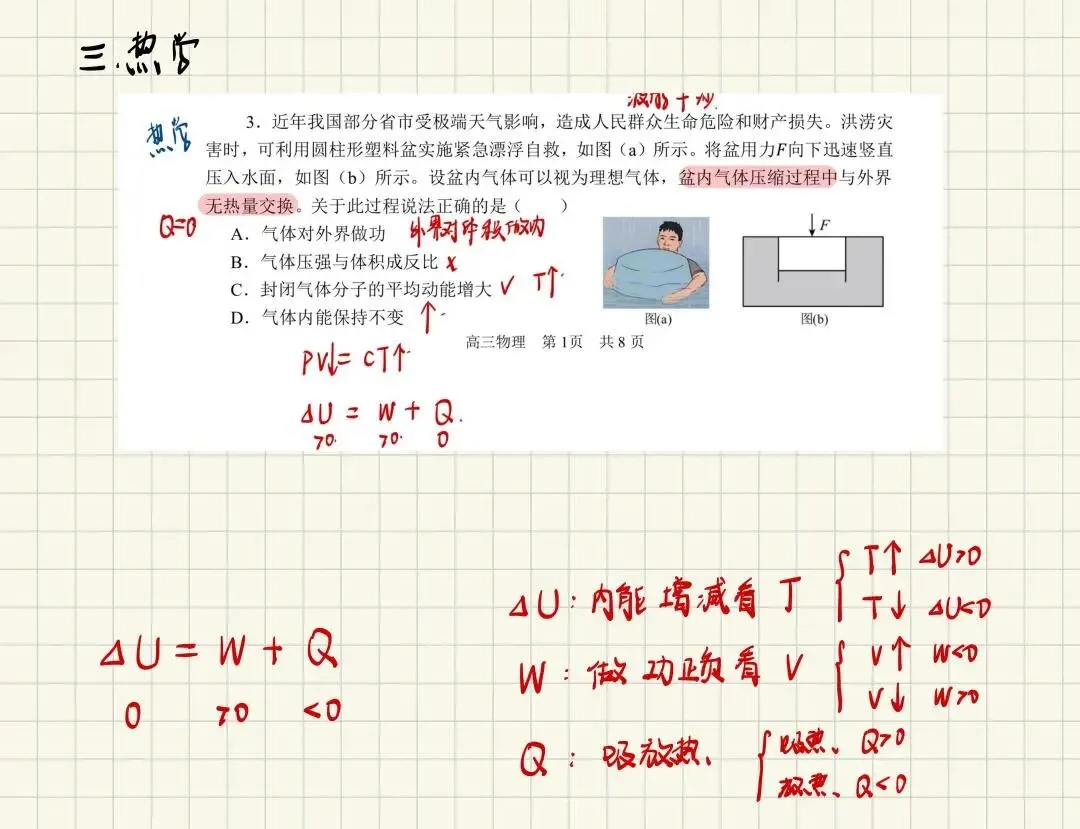 三.热学
热学
3．近年我国部分省市受极端天气影响，造成人民群众生命危险和财产损失。洪涝灾
害时，可利用圆柱形塑料盆实施紧急漂浮自救，如图（a）所示。将盆用力F向下迅速竖直
压入水面，如图（b）所示。设盆内气体可以视为理想气体，盆内气体压缩过程中与外界
无热量交换。关于此过程说法正确的是（　　）
Q=0
A．气体对外界做功 外界对
做功
B．气体压强与体积成反比 x
C．封闭气体分子的平均动能增大 √ T↑
D．气体内能保持不变 ↑
F
图(a)
图(b)
高三物理 第1页 共8页
PV↓= CT↑
ΔU = W + Q.
>0. >0. 0
ΔU = W + Q
0 >0 <0
ΔU：内能增减看 T { T↑ ΔU>0
T↓ ΔU<0
W：做功正负看 V { V↑ W<0
V↓ W>0
Q：吸放热、 { 吸热、Q>0
放热、Q<0